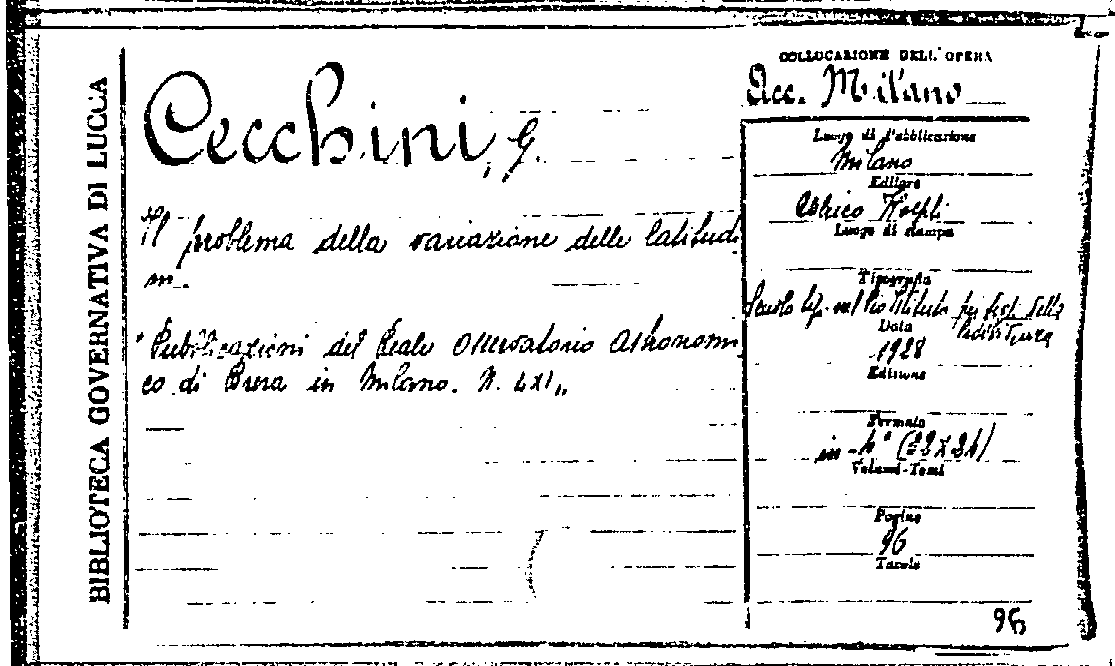 BIBLIOTECA GOVERNATIVA DI LUCCA
Cecchini, G.
Il problema della variazione delle latitudi
ni.
"Pubblicazioni del Reale Osservatorio Astronomi
co di Brera in Milano. N. LXI„
COLLOCAZIONE DELL'OPERA
Acc. Milano
Luogo di Pubblicazione
Milano
Editore
Ulrico Hoepli
Luogo di stampa
Tipografia
Scuola Tip. nel Pio Istituto pei figli della
Data
1928
Edizione
Formato
in-4°
Volumi-Tomi
Pagine
96
Tavole
96